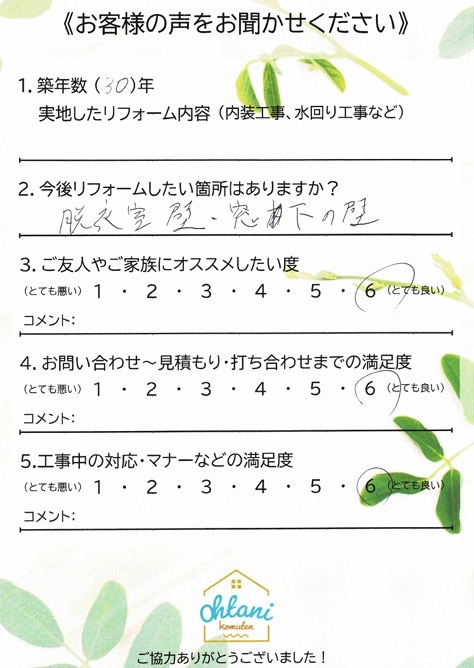 《お客様の声をお聞かせください》
1. 築年数 (30)年
実地したリフォーム内容 (内装工事、水回り工事など)
2. 今後リフォームしたい箇所はありますか?
脱衣室 壁・窓下の壁
3. ご友人やご家族にオススメしたい度
(とても悪い) 1 ・ 2 ・ 3 ・ 4 ・ 5 ・ 6 (とても良い)
コメント:
4. お問い合わせ~見積もり・打ち合わせまでの満足度
(とても悪い) 1 ・ 2 ・ 3 ・ 4 ・ 5 ・ 6 (とても良い)
コメント:
5.工事中の対応・マナーなどの満足度
(とても悪い) 1 ・ 2 ・ 3 ・ 4 ・ 5 ・ 6 (とても良い)
コメント:
ohtani
komuten
ご協力ありがとうございました!